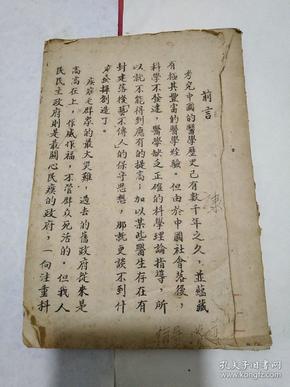 前言
考究中國的醫學歷史已有數千年之久，並蘊藏
有極其豐富的醫學經驗。但由於中國社會落後，
科學不發達，醫學缺乏正確的科學理論指導，所
以就不能得到應有的提高；加以某些醫生存在有
封建落後“藝不傳人”的保守思想，那就更談不到什
麽發揮創造了。
疾病是群众的最大災難，過去的舊政府從來是
高高在上，作威作福，不管群众死活的。但我人
民民主政府則是最關心民瘼的政府，一向注重科